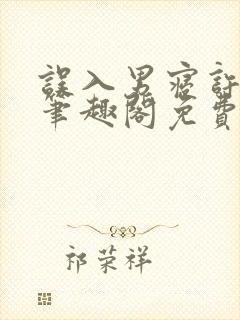 誤入男寢許
筆趣閣免費
祁荣祥